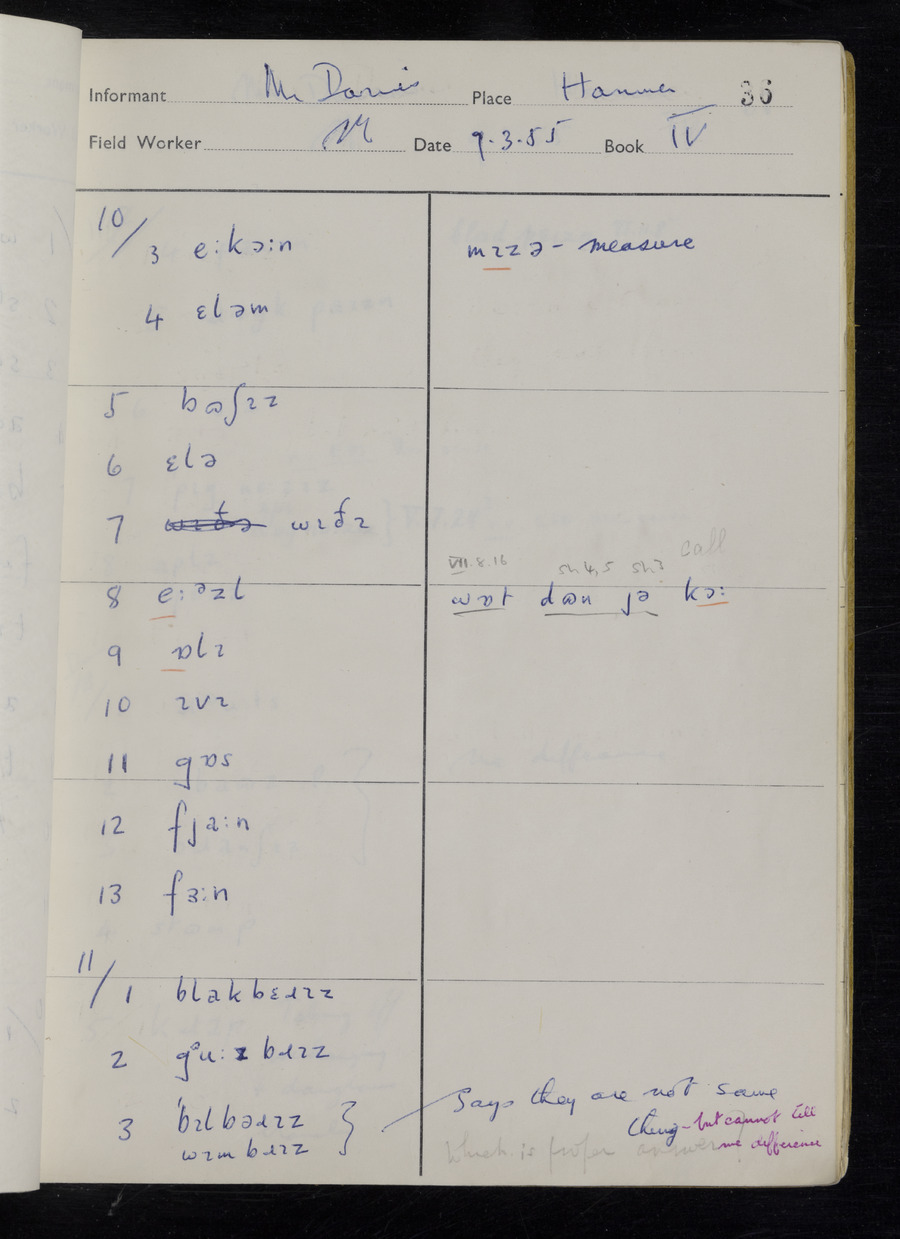 Informant Mr Davies Place Hanmer 36
Field Worker Date 9.3.55 Book IV
10/3 e:kə:n
mɪzə - measure
4 ɛləm
5 bɷʃɪz
6 ɛlə
7 wɪðɪ
VII.8.16 sh 4,5 sh? call
8 e:ᵊzl
wɒt dɷn jə kɔ:
9 ɒlɪ
10 ɪvɪ
11 gɒs
12 fja:n
13 fɜ:n
11/1 blakbɛɹɪz
2 gᵊu:zbɹɪz
3 bɪlbəɹɪz }
Says they are not same
wɪmbɹɪz
thing - but cannot tell
me difference
Which is proper answer